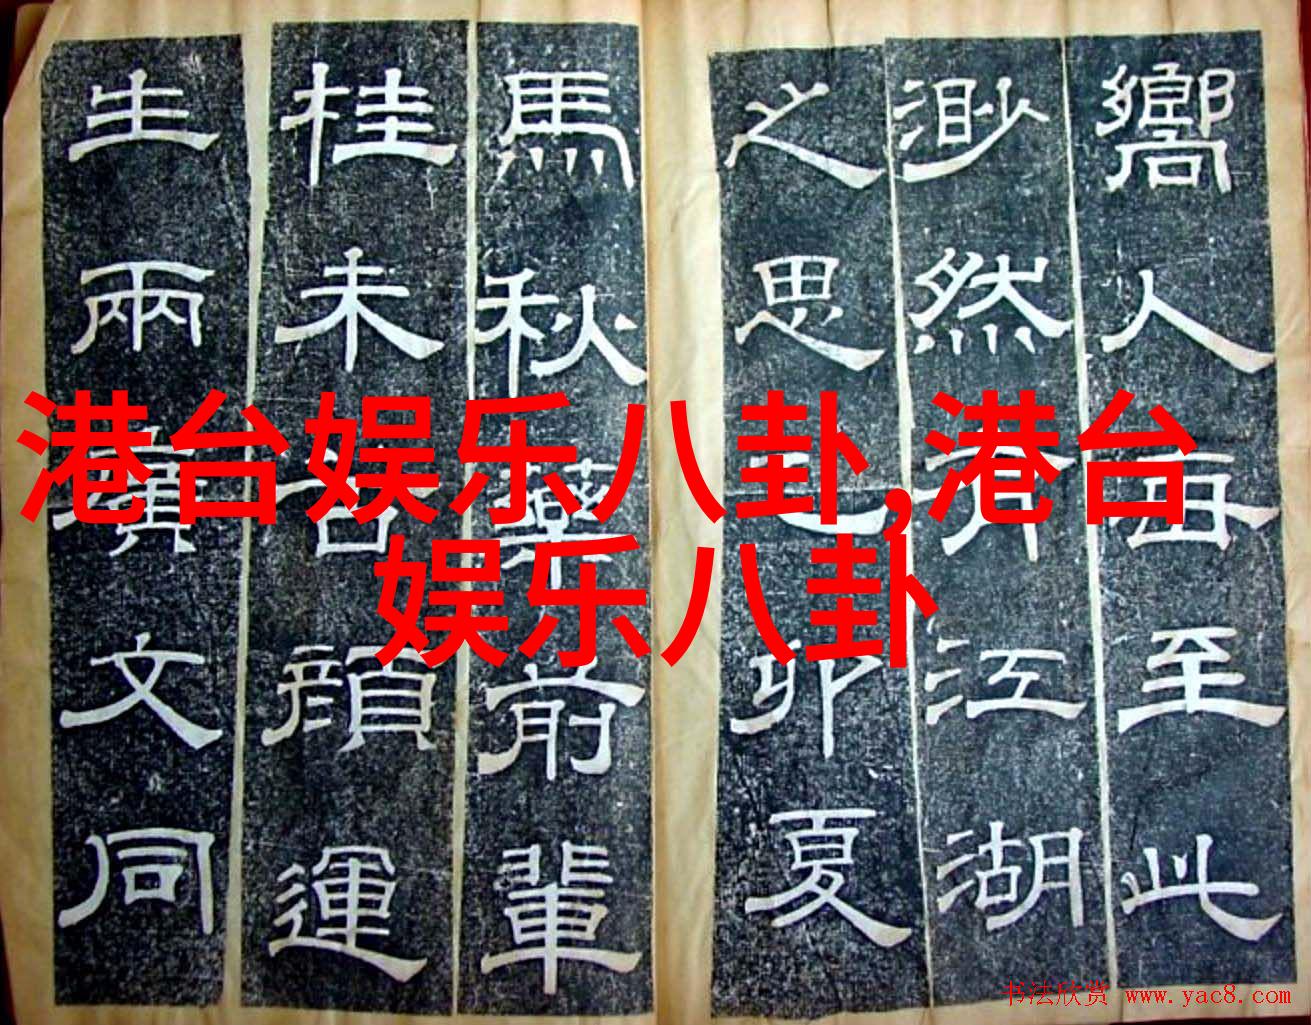 港台娱乐八卦,港台
娱乐八卦
嚮人每至此
渺然有江湖
之思己卯夏
馬秋藥前輩
桂未谷顏運
生兩文同
书法欣赏 www.yac8.com